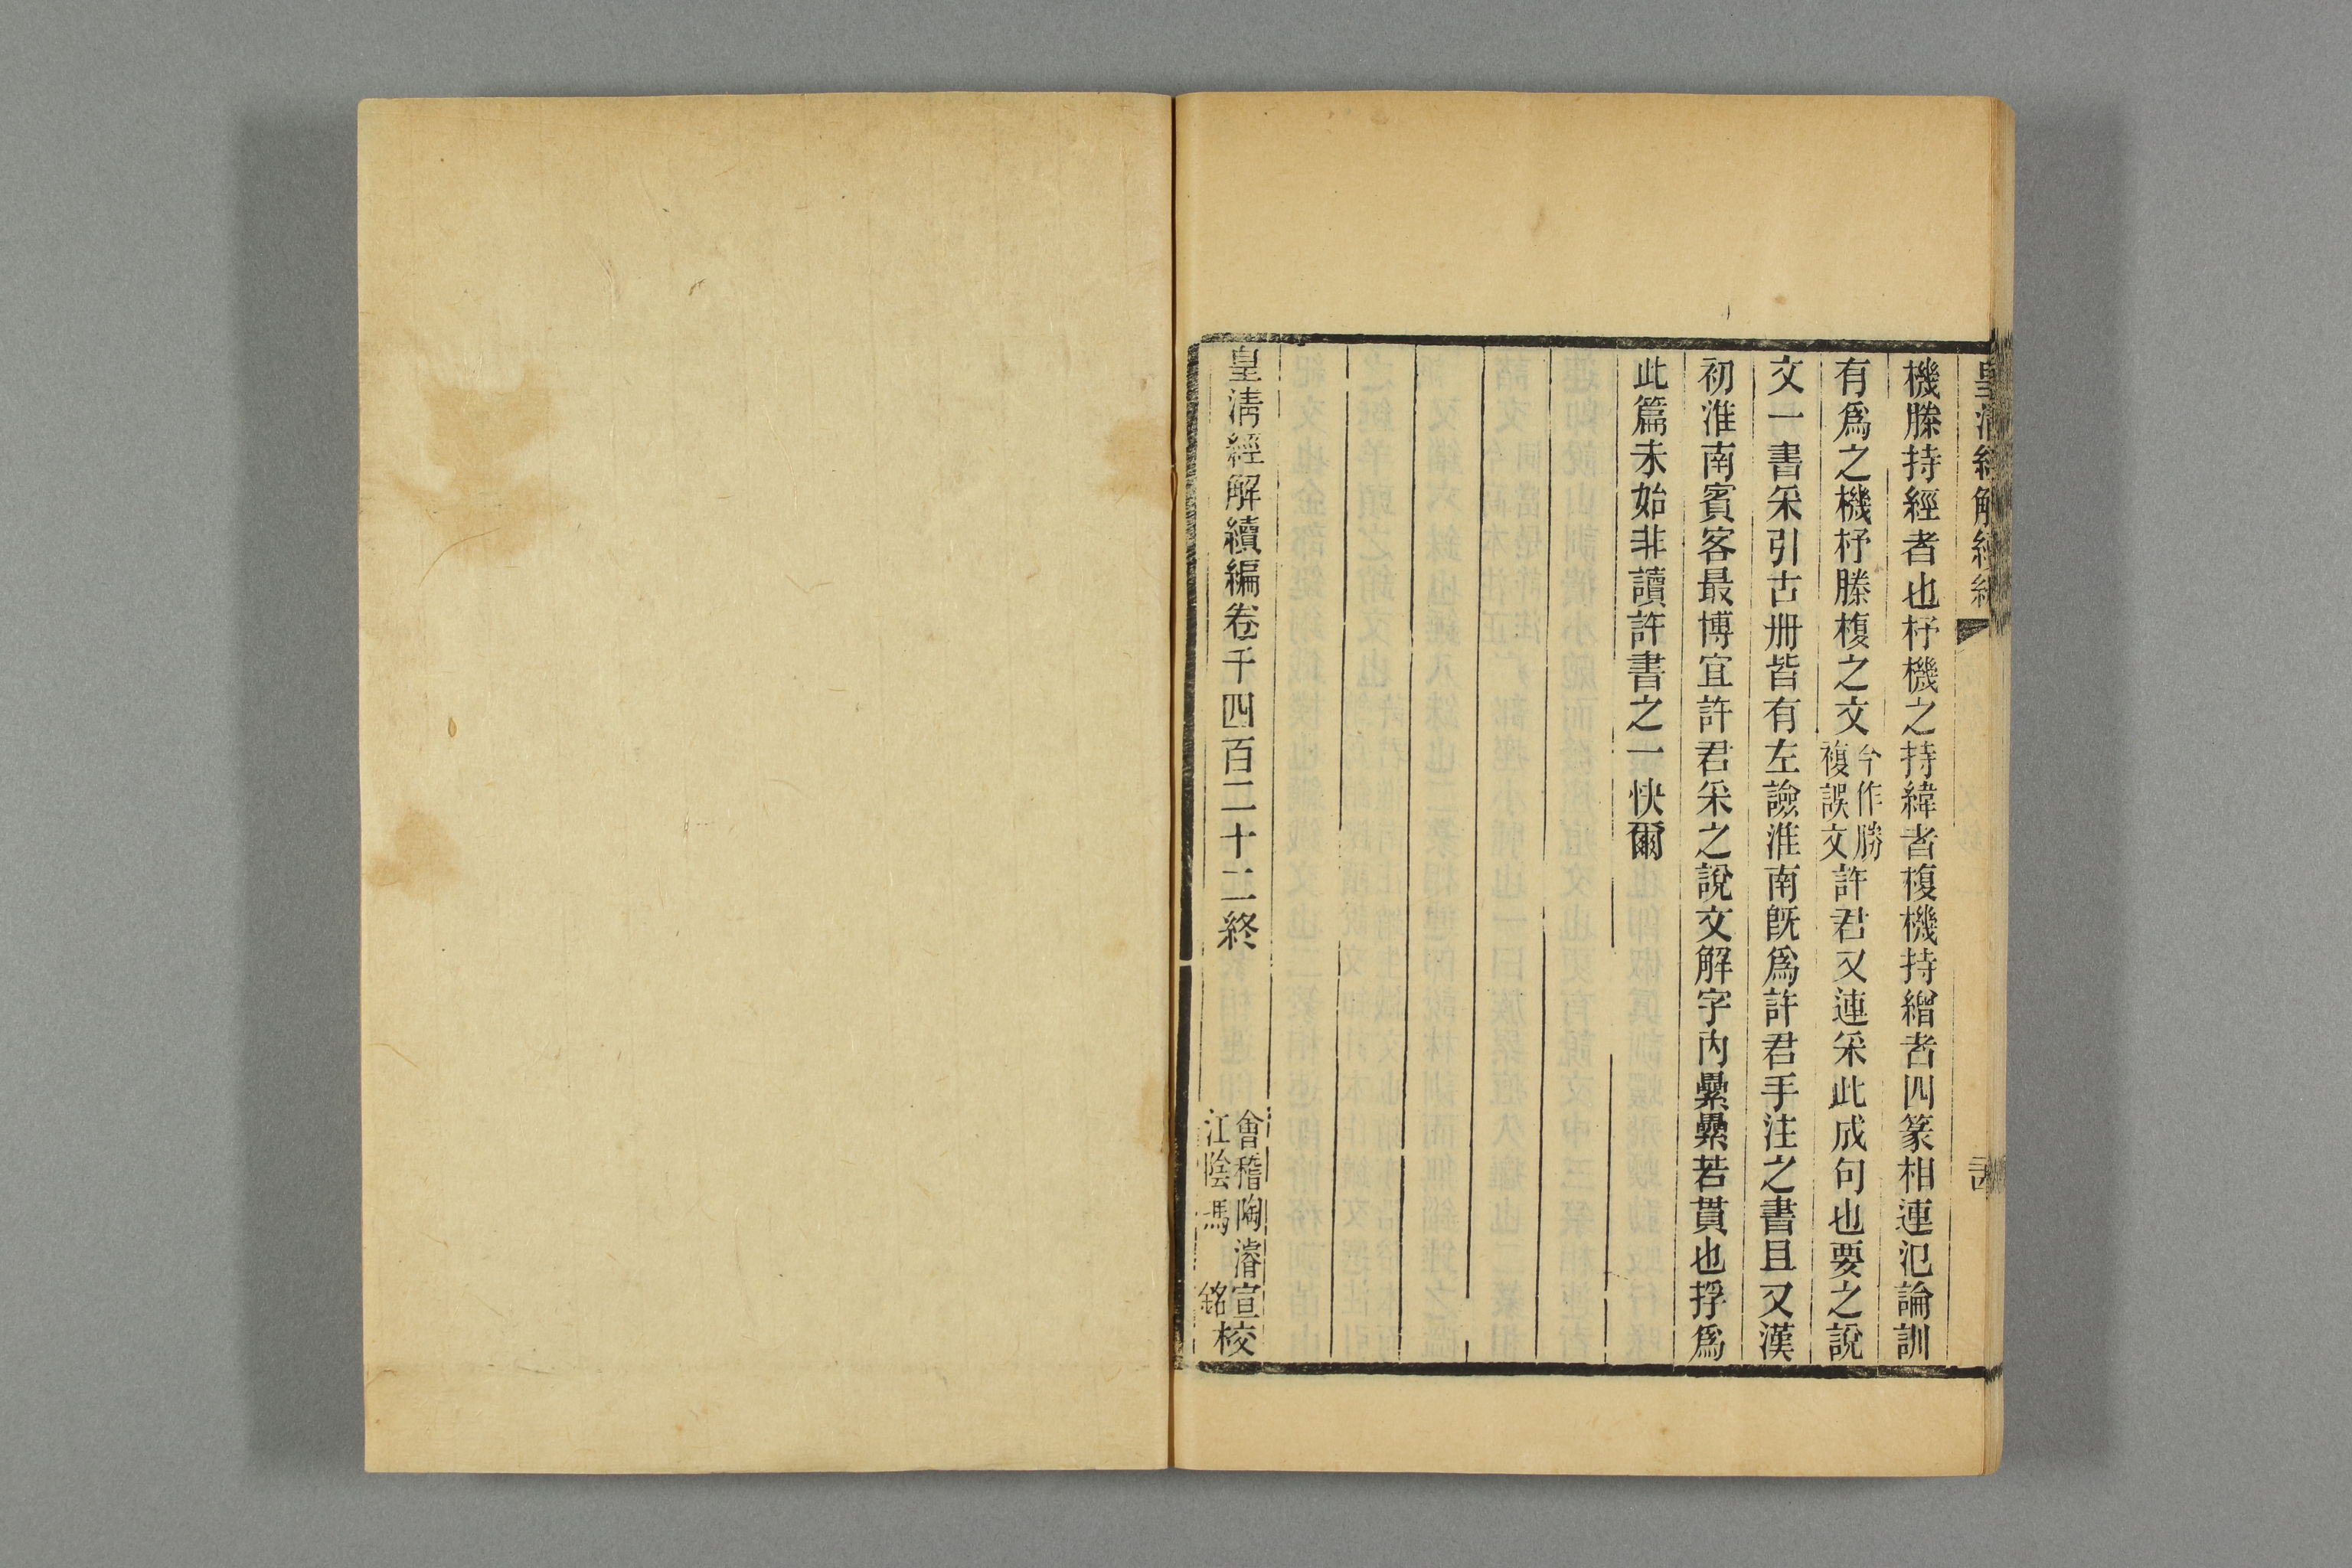 皇清經解續編
機滕持經者也杼機之持緯者椱機持繒者四篆相連氾論訓
有爲之機杼滕椱之文今作勝複誤文許君又連采此成句也要之說
文一書采引古册皆有左譣淮南旣爲許君手注之書且又漢
初淮南賓客最博宜許君采之說文解字內纍纍若貫也捊爲
此篇未始非讀許書之一快爾
皇清經解續編卷千四百二十二終
會稽陶濬宣
江陰馮銘校